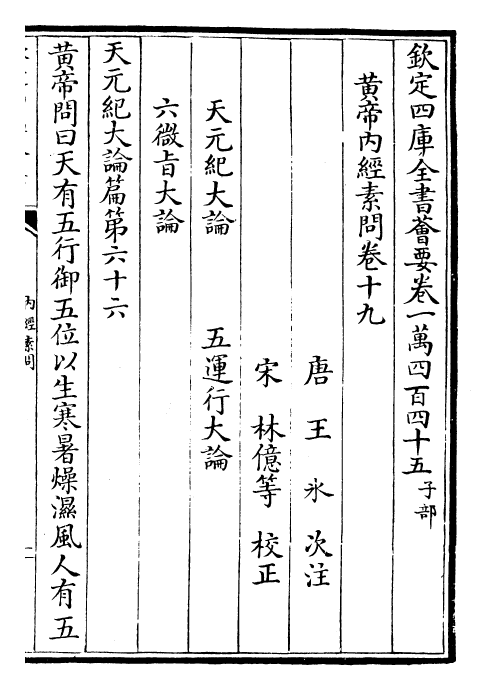 欽定四庫全書薈要卷一萬四百四十五 子部
黃帝內經素問卷十九
唐 王 氷 次注
宋 林億等 校正
天元紀大論 五運行大論
六微旨大論
天元紀大論篇第六十六
黃帝問曰天有五行御五位以生寒暑燥濕風人有五
內經素問